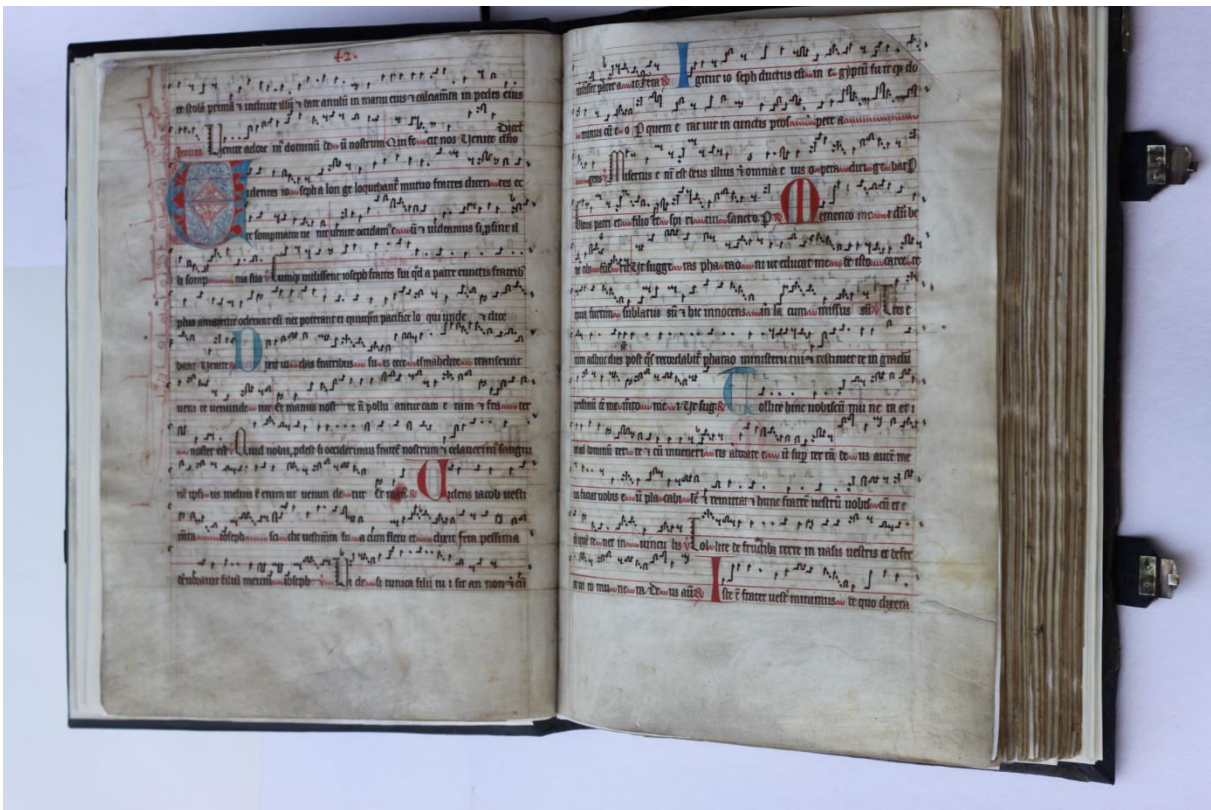 42.
te stolā primā ⁊ induite illū ⁊ date anulū in manu eius ⁊ calciamta in pedes eius
Dicet
Inuita. Uenite adore m⁹ dominū de u nostrum Qui fe cit nos Uenite
identes io seph a lon ge loquebant mutuo fratres dicen tes ec
ce sompniator ue nit uenite occidam⁹ e ū ⁊ uideamus si
li somp nia sua Cumq uidissent ioseph fratres sui qd a patre cunctis fratrib
plus amaretur oderant eū nec poterant ei quicqm pacifice lo qui unde ⁊ dice
bant Uenite Dixit iu das fratribus su is ecce ismahelite transeunt
ueni te uenunde tur et manus nost re ñ pollu antur caro e nim ⁊ fra ter
noster est Quid nobis pdest si occiderimus fratrē nostrum ⁊ celauerim⁹ sangui
nē ipsi us melius ē enim ut uenun de tur Et man⁹ Uidens iacob uesti
mēta ioseph sci dit uestimta su a cum fletu et dixit fera pessima
deuorauit filiū meum ioseph Ui de si tunica filii tu i sit an non ⁊ cū
misset pater a it Fera Igitur io seph ductus est in e gyptū fu it q do
minus cū e o P quem e rat uir in cunctis pros pere a
gens Misertus e ni est deus illius ⁊ omnia e ius o pera diri ge bat P
Gloria patri et filio et spi ri tui sancto. P Memento me i dū be
ne tibi fue rit Ut sugge ras pha rao ni ut educat me de isto carce re
quia furtim sublatus sū ⁊ hic innocens in la cum missus sū Tres e
nim adhuc dies post qs recordabit pharao ministerii tui ⁊ restituet te in gradū
pristinū tc me mto me i Ut sug Tollite hinc uobiscū mu ne ra et i
te ad dominū ter re ⁊ cū inueneri tis adorate e ū sup ter rā de us autē me
us faciat uobis e ū pla cabi lē ⁊ remittat ⁊ hunc fratrē uestrū uobis cū et e
ū quē te net in uincu lis Tol lite de fructib terre in uasis uestris et defer
te ui ro mu ne ra. De us aū Iste ē frater uest minimus de quo dixera